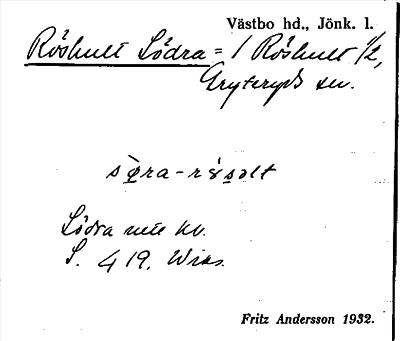 Västbo hd., Jönk. l.
Röshult Södra = 1 Röshult 1/2,
Gryteryds sn.
Södra
S. 419.
Fritz Andersson 1932.